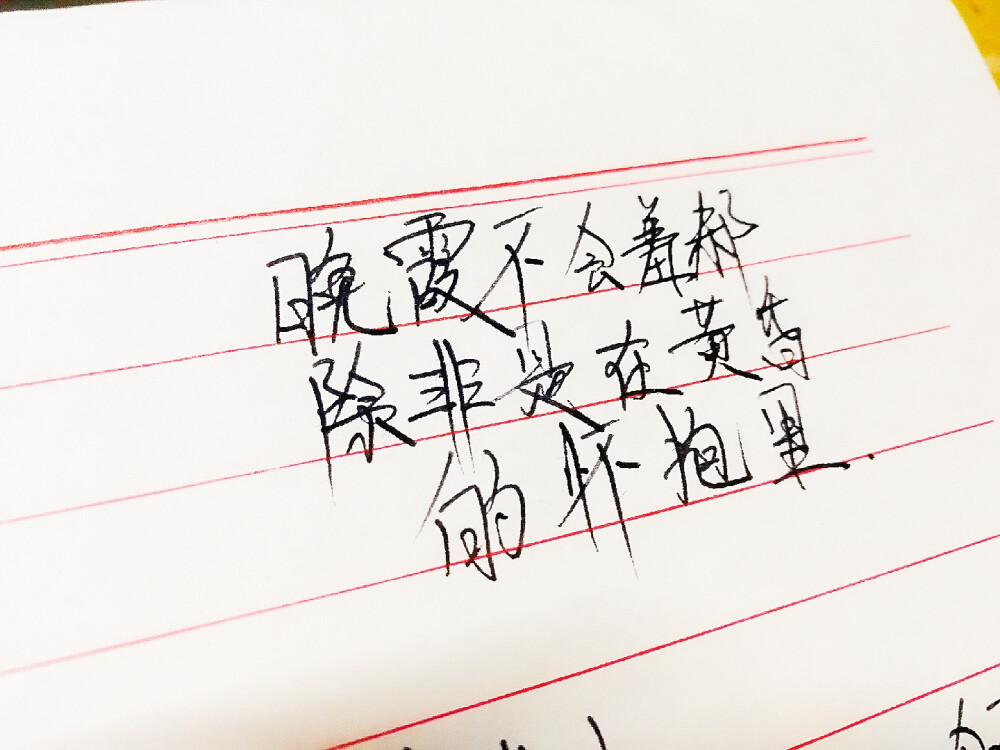 晚霞不会羞赧
除非是在黄昏
的怀抱里.